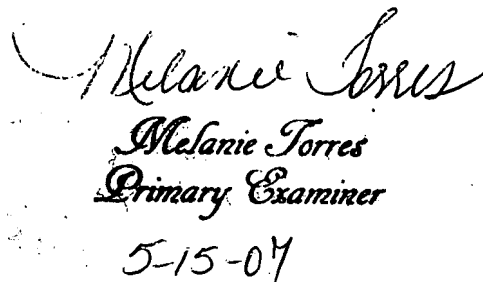 Melanie Torres
Melanie Torres
Primary Examiner
5-15-07